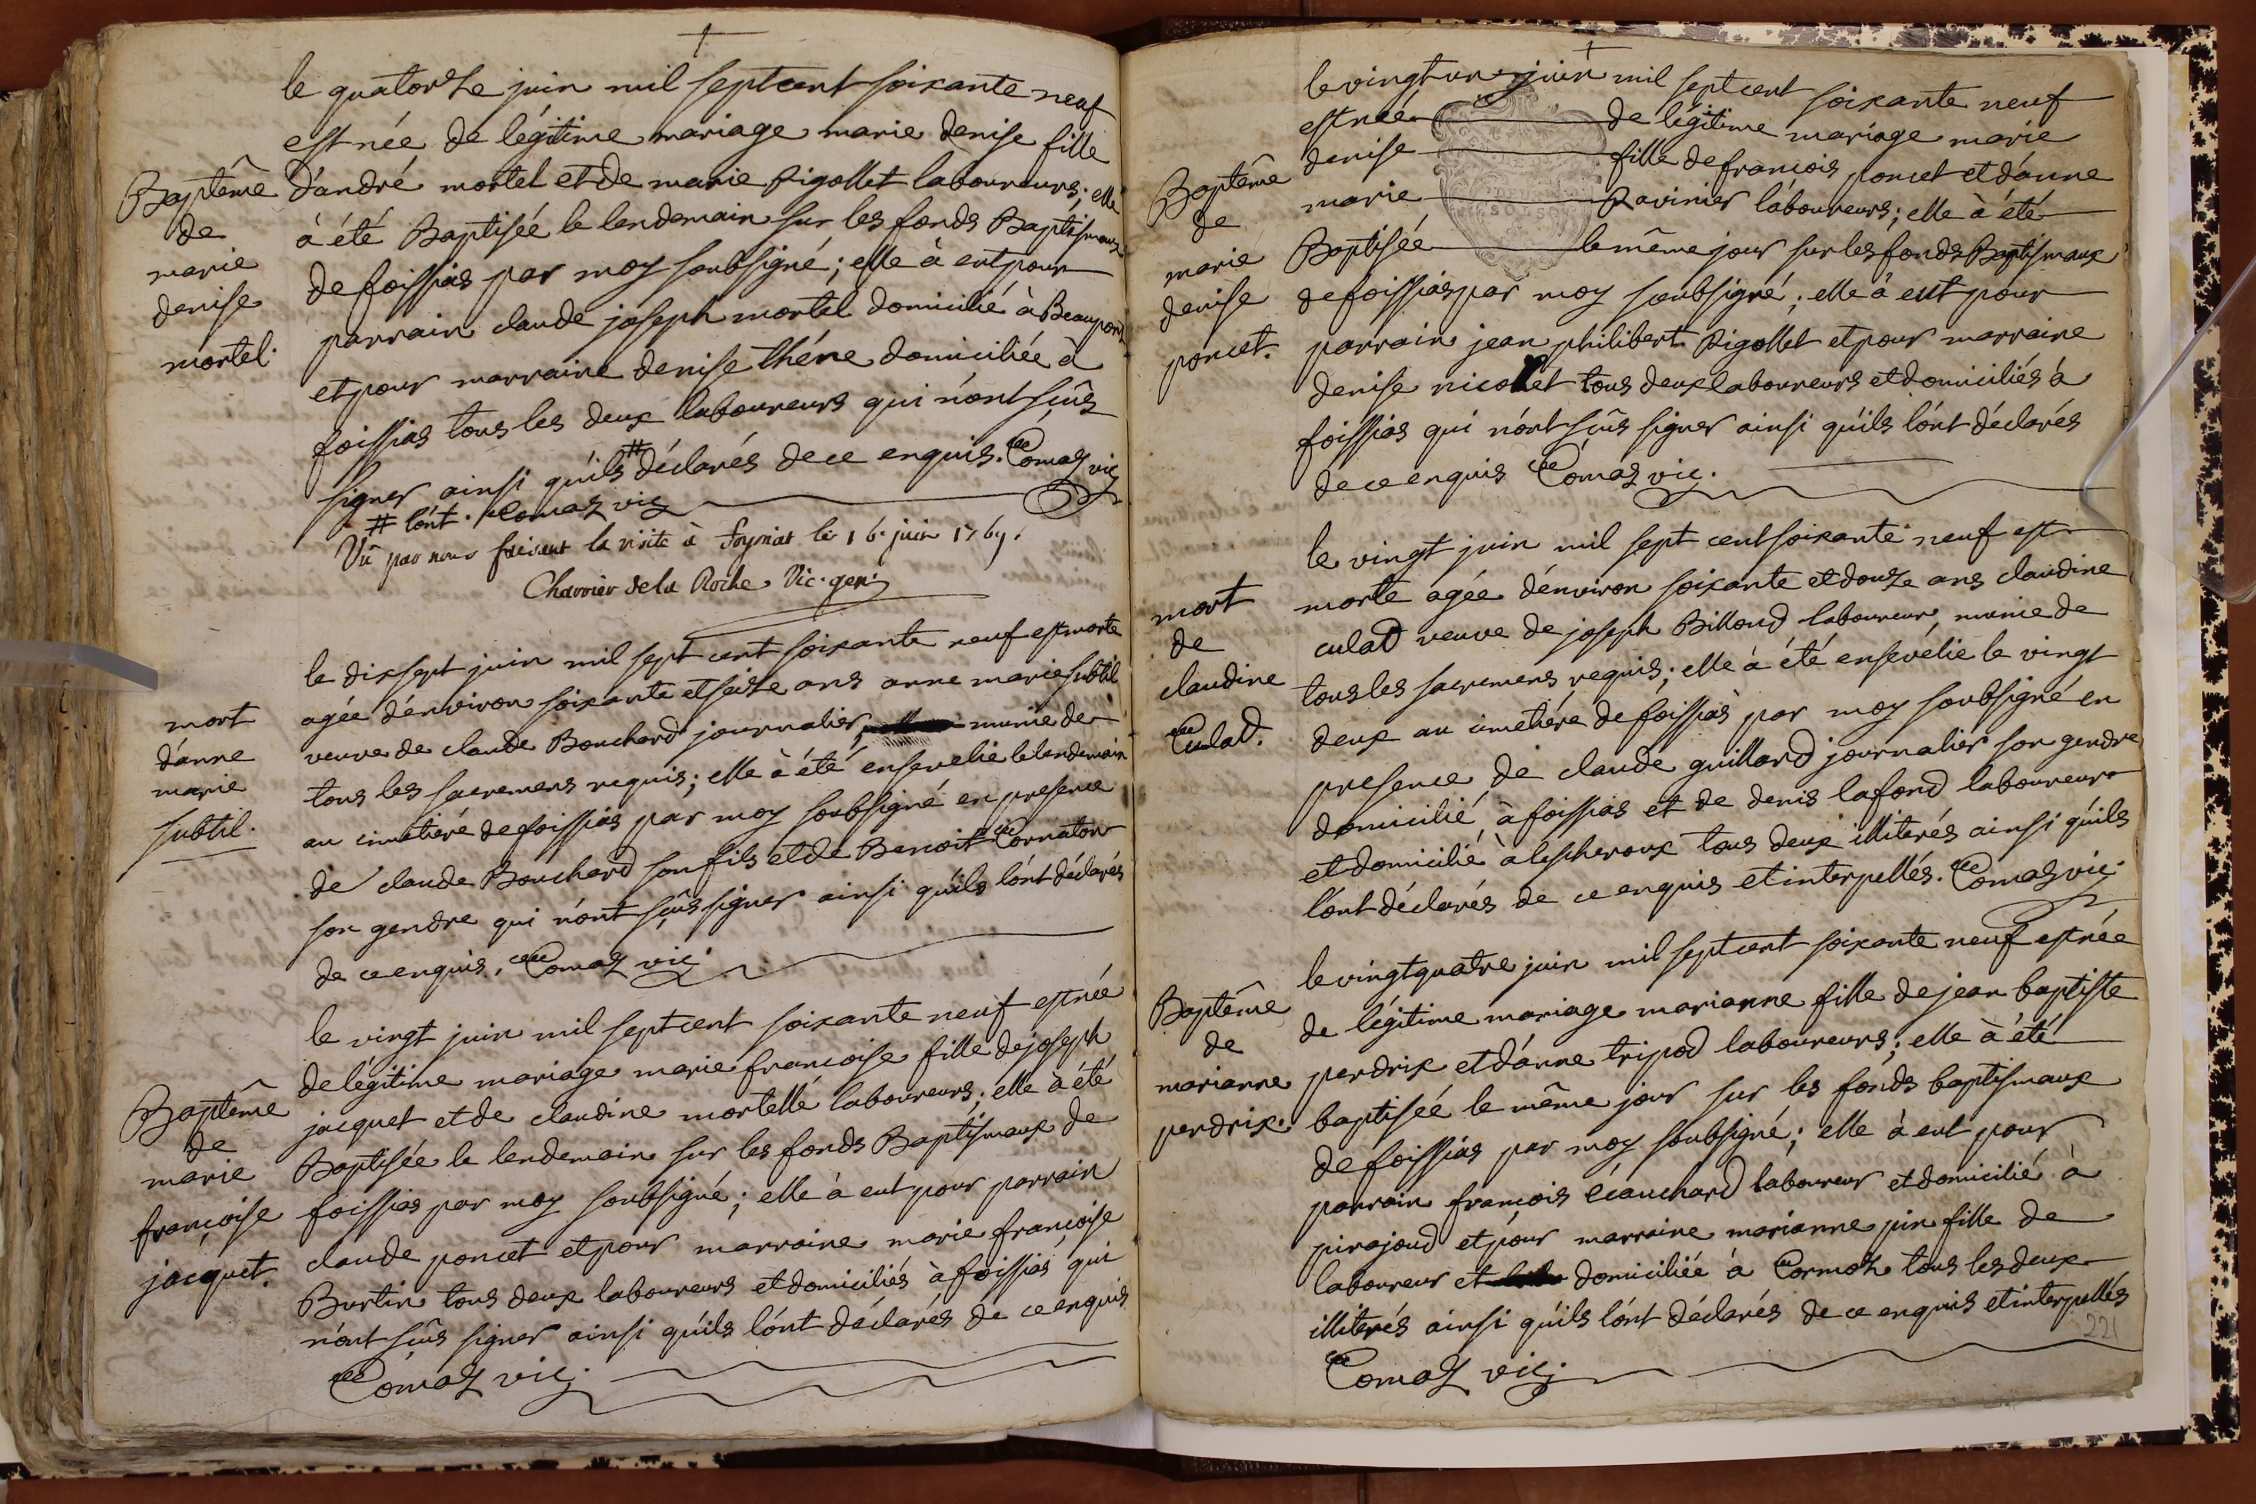 le quatorze juin mil sept cent soixante neuf
est née de légitime mariage marie denise fille
Baptême
de
marie
denise
mortel.
d'andré mortel et de marie Rigollet laboureurs; elle
à été Baptisée le lendemain sur les fonds Baptismaux
de foissias par moy soubsigné; elle à eut pour
parrain claude joseph mortel domicilié à Beaupont
et pour marraine denise théne domiciliée à
foissias tous les deux laboureurs qui n'ont sçûs
signer ainsi qu'ils # déclarés de ce enquis. Comaz vic
# l'ont. Comaz vic
Vû par nous faisant la visite à foyssiat le 16. juin 1769.
Charrier de la Roche Vic. gen.
mort
d'anne
marie
subtil.
le dix sept juin mil sept cent soixante neuf est morte
agée d'environ soixante et seize ans anne marie subtil
veuve de claude Bouchard journalier, munie de
tous les sacremens requis; elle à été ensevelie le lendemain
au cimetiére de foissias par moy soubsigné en presence
de claude Bouchard son fils et de Benoit Cornaton
son gendre qui n'ont sçûs signer ainsi qu'ils l'ont déclarés
de ce enquis. Comaz vic.
Baptême
de
marie
françoise
jacquet.
le vingt juin mil sept cent soixante neuf est née
de légitime mariage marie francoise fille de joseph
jacquet et de claudine mortelle laboureurs; elle à été
Baptisée le lendemain sur les fonds Baptismaux de
foissias par moy soubsigné; elle à eut pour parrain
claude poncet et pour marraine marie françoise
Burtin tous deux laboureurs et domiciliés à foissias qui
n'ont sçûs signer ainsi qu'ils l'ont déclarés de ce enquis
Comaz vic.
Baptême
de
marie
denise
poncet.
le vingt un juin mil sept cent soixante neuf
est née de légitime mariage marie
denise fille de françois poncet et d'anne
marie Ravinier laboureurs; elle à été
Baptisée le même jour sur les fonds Baptismaux
de foissias par moy soubsigné; elle à eut pour
parrain jean philibert Rigollet et pour marraine
denise nicollet tous deux laboureurs et domiciliés à
foissias qui n'ont sçûs signer ainsi qu'ils l'ont déclarés
de ce enquis Comaz vic.
mort
de
claudine
Culad.
le vingt juin mil sept cent soixante neuf est
morte agée d'environ soixante et douze ans claudine
culad veuve de joseph Billoud laboureur, munie de
tous les sacremens requis; elle à été ensevélie le vingt
deux au cimetiére de foissias par moy soubsigné en
presence de claude guillard journalier son gendre
domicilié à foissias et de denis lafond laboureur
et domicilié à lescheroux tous deux illiterés ainsi qu'ils
l'ont déclarés de ce enquis et interpellés. Comaz vic.
Baptême
de
marianne
perdrix.
le vingt quatre juin mil sept cent soixante neuf est née
de légitime mariage marianne fille de jean baptiste
perdrix et d'anne tripod laboureurs; elle à été
baptiseé le même jour sur les fonds baptismaux
de foissias par moy soubsigné; elle à eut pour
parrain francois écauchard laboureur et domicilié à
pirajoud et pour marraine marianne pin fille de
laboureur et domiciliée à Cormoz tous les deux
illiterés ainsi qu'ils l'ont déclarés de ce enquis et interpellés
Comaz vic.
221